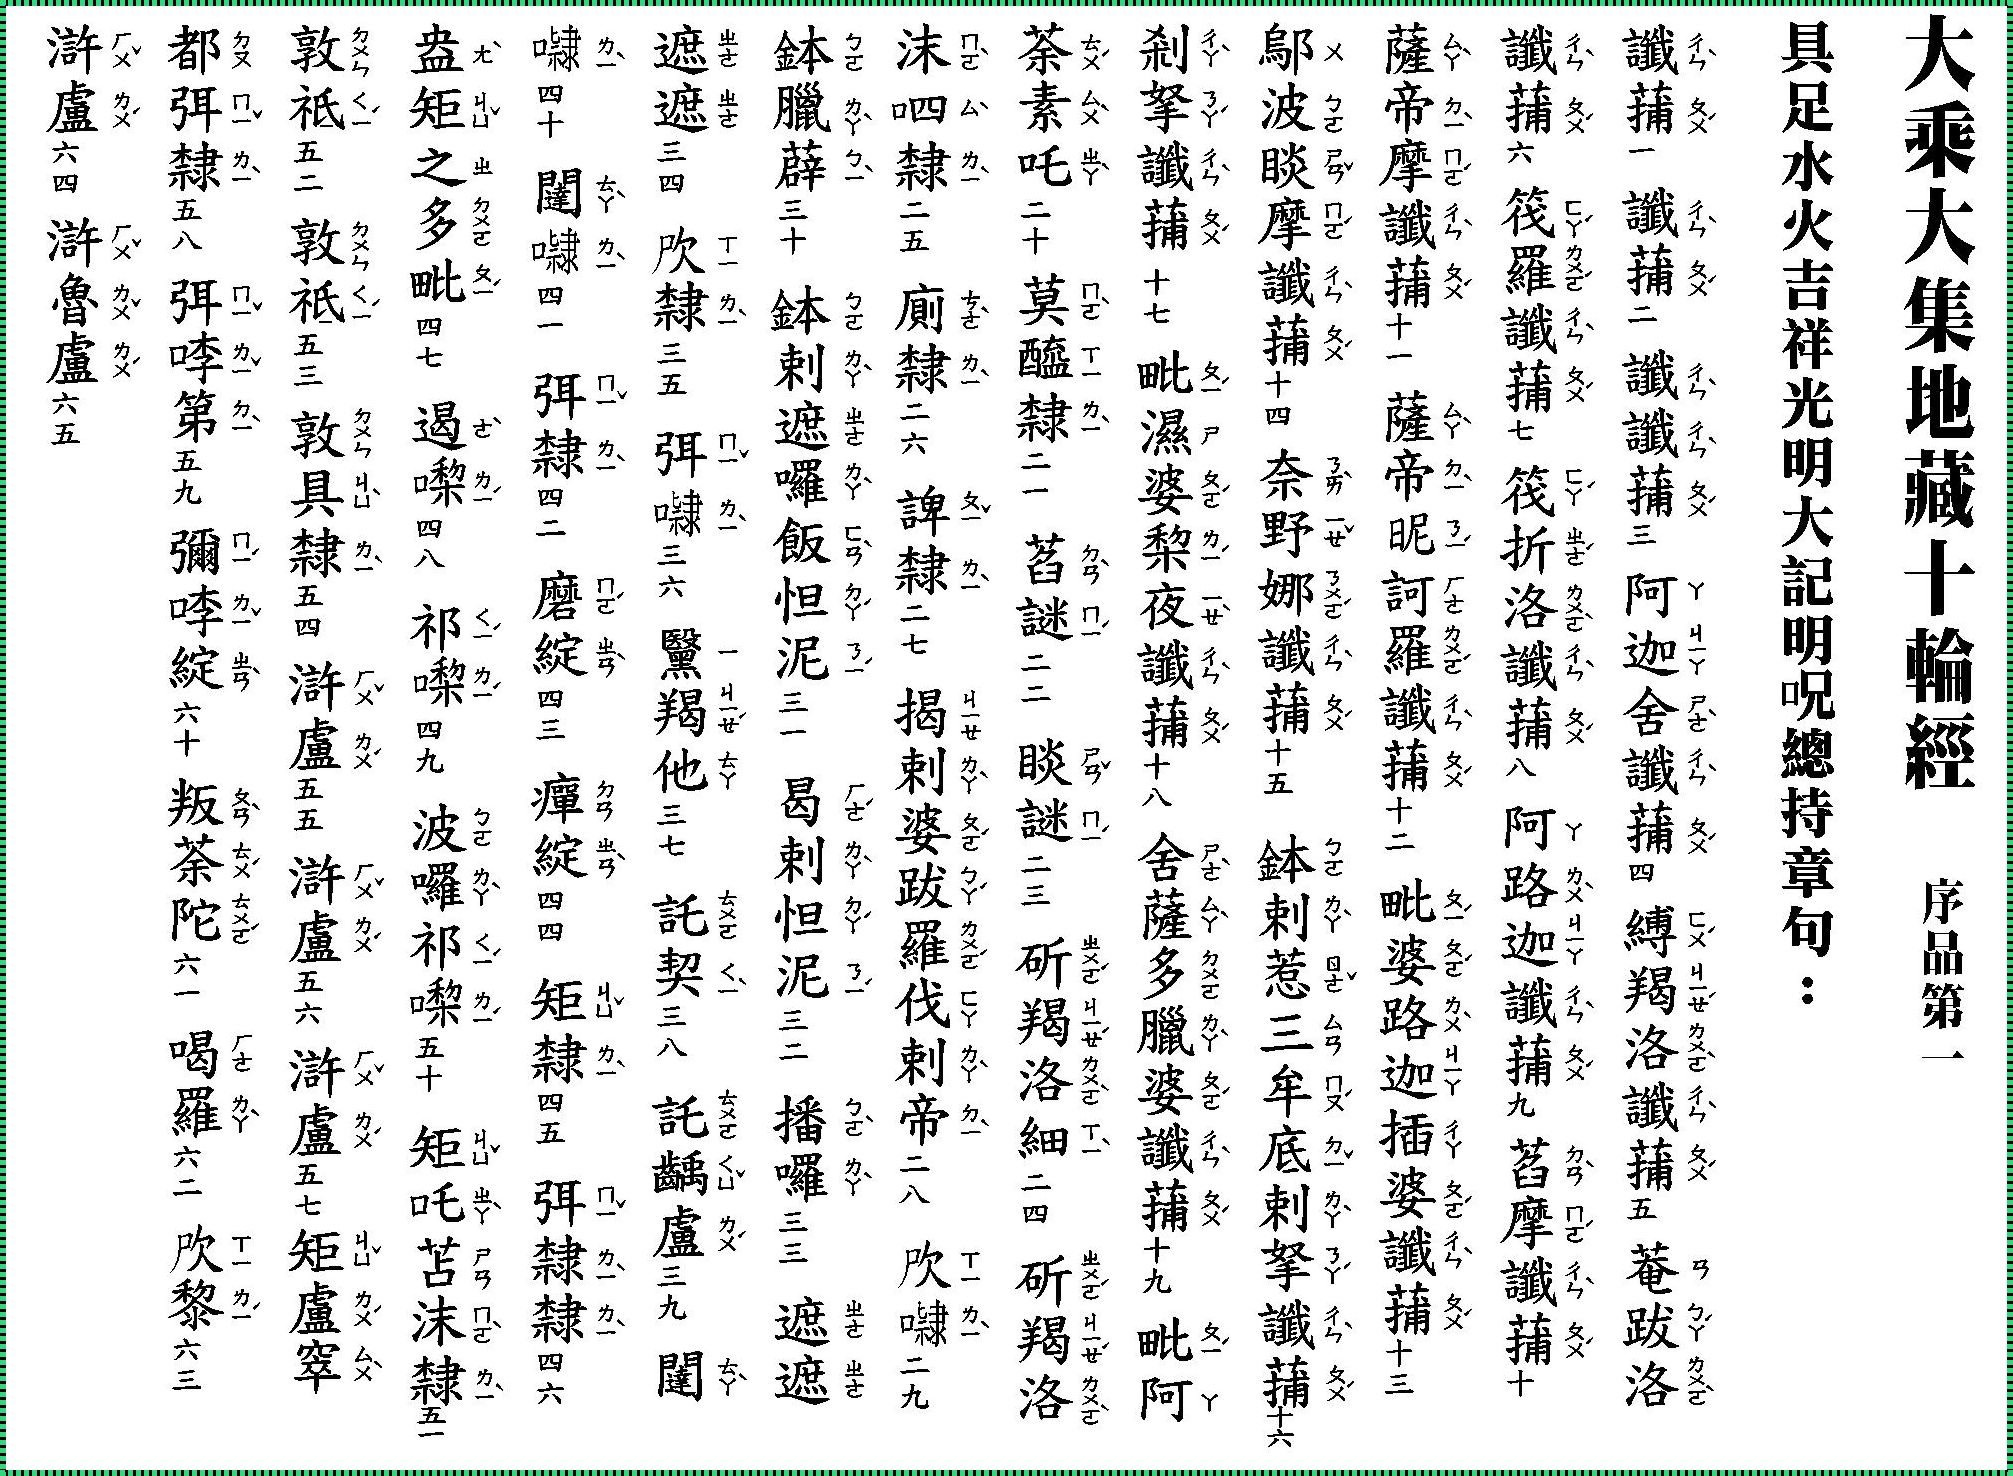 大乘大集地藏十輪經　序品第一
具足水火吉祥光明大記明呪總持章句：
讖蒱一 讖蒱二 讖讖蒱三 阿迦舍讖蒱四 縛羯洛讖蒱五 菴跋洛
讖蒱六 筏羅讖蒱七 筏折洛讖蒱八 阿路迦讖蒱九 萏摩讖蒱十
薩帝摩讖蒱十一 薩帝昵訶羅讖蒱十二 毗婆路迦插婆讖蒱十三
鄔波睒摩讖蒱十四 奈野娜讖蒱十五 鉢剌惹三牟底剌拏讖蒱十六
剎拏讖蒱十七 毗濕婆梨夜讖蒱十八 舍薩多臘婆讖蒱十九 毗阿
荼素吒二十 莫醯隸二一 萏謎二二 睒謎二三 斫羯洛細二四 斫羯洛
沫呬隸二五 廁隸二六 諀隸二七 揭剌婆跋羅伐剌帝二八 囇二九
鉢臘薜三十 鉢剌遮囉飯怛泥三一 曷剌怛泥三二 播囉三三 遮遮
遮遮三四 隸三五 弭囇三六 黳羯他三七 託契三八 託齲盧三九 闥
囇四十 闥囇四一 弭隸四二 磨綻四三 癉綻四四 矩隸四五 弭隸隸四六
盎矩之多毗四七 遏㗚四八 祁㗚四九 波囉祁㗚五十 矩吒苫沫隸五一
敦祇五二 敦祇五三 敦具隸五四 滸盧五五 滸盧五六 滸盧五七 矩盧窣
都弭隸五八 弭哩第五九 彌哩綻六十 叛荼陀六一 喝羅六二 黎六三
滸盧六四 滸魯盧六五